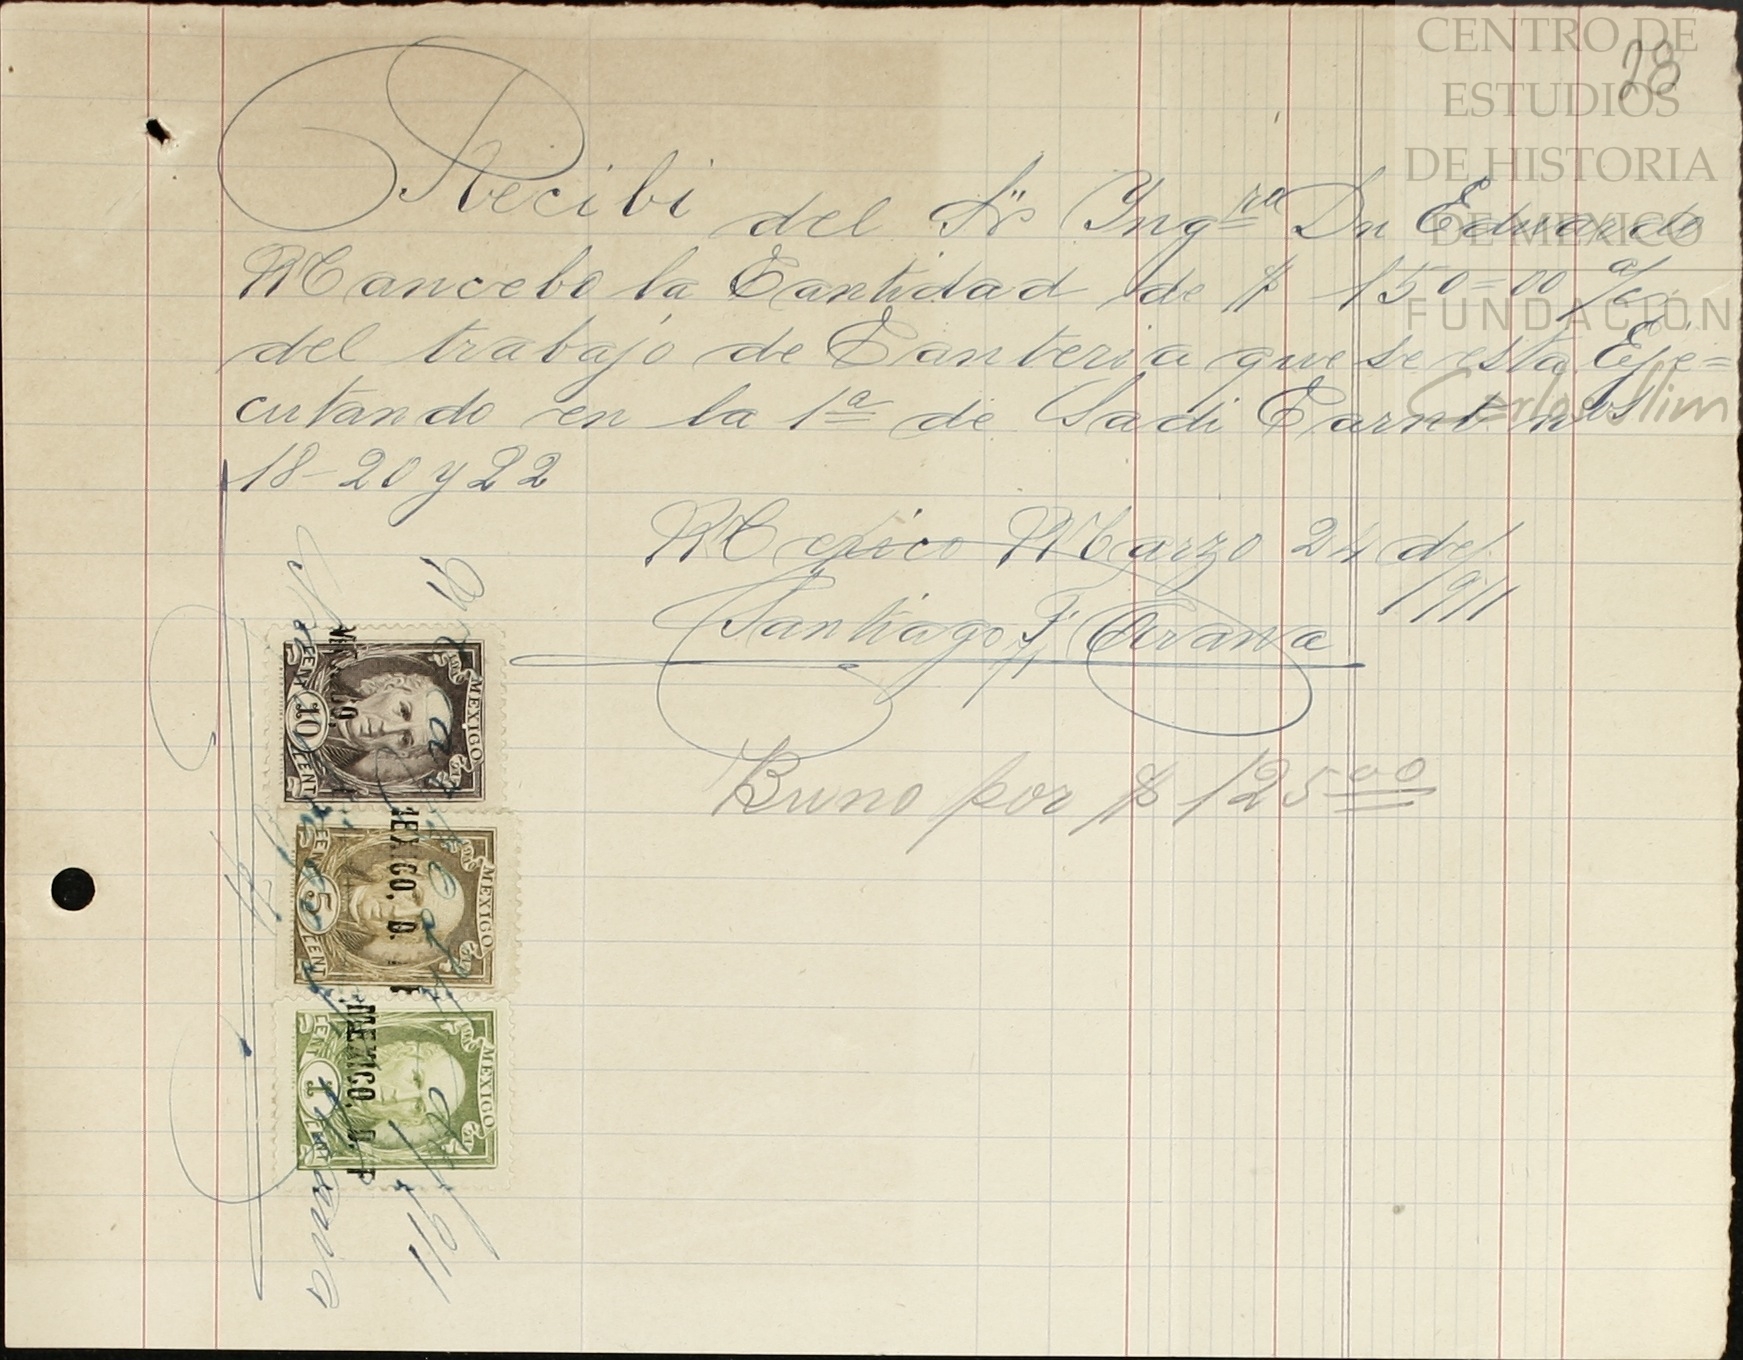 CENTRO DE
ESTUDIOS
DE HISTORIA
DE MEXICO
FUNDACIÓN
Carlos Slim
28
Recibi del Sr Ingro Dn Eduardo
Mancebo la Cantidad de $ 150=00 a/c
del trabajo de Canteria que se esta Eje=
cutando en la 1a de Sadi Carnt nos
18-20 y 22
Mexico Marzo 24 de
1911
Santiago F. Arana
Bueno por $ 125 00
MEXICO
10
CENT
MEXICO
5
CENT
MEXICO
1
CENT
MEXICO, D.
MEXICO, D. F
Marzo 24 de 1911
Santiago F. Arana